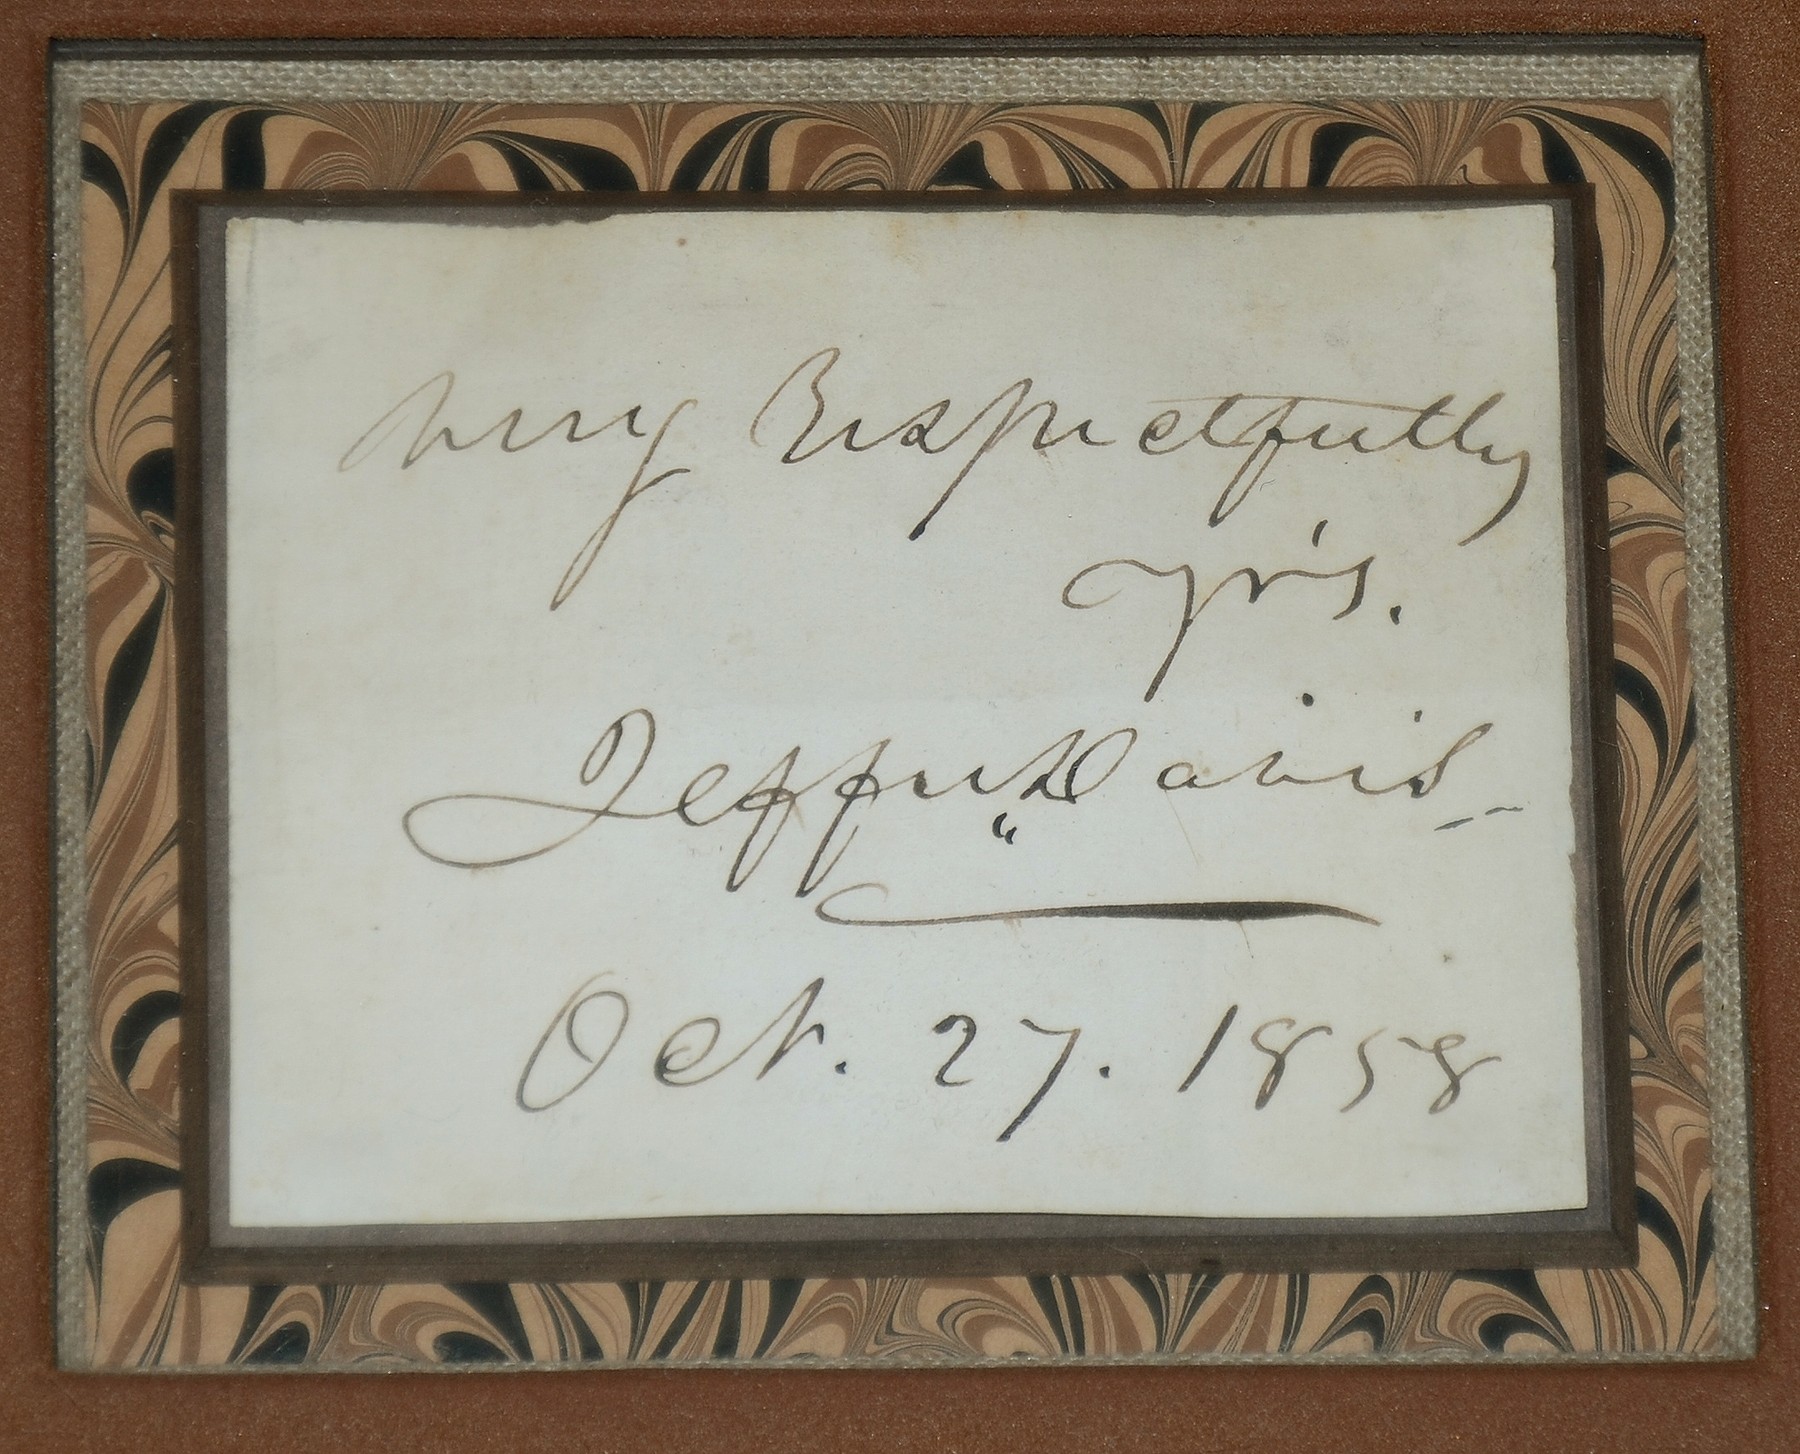 Very Respectfully
yr's.
Jeffn Davis
Oct. 27. 1858